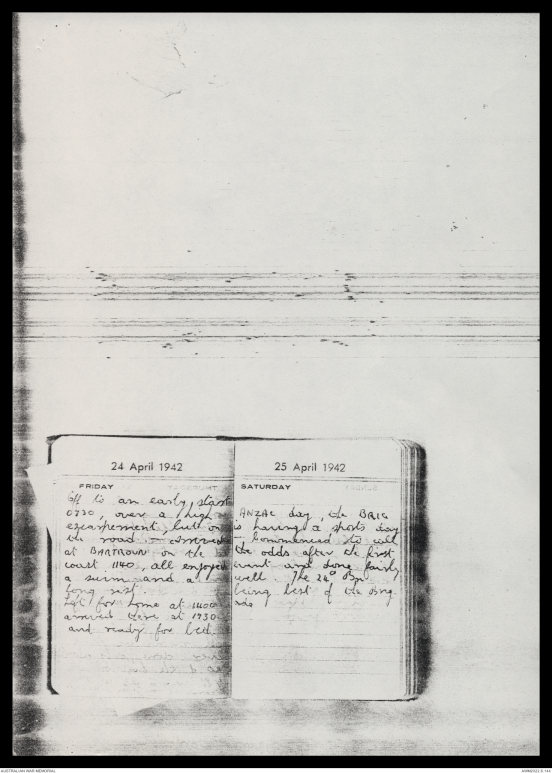 24 April 1942
FRIDAY
Off to an early start
0730, over a high
escarpement, but on
the road & arrived
at BARTROUN on the
coast 1140, all enjoyed
a swim and a
long rest.
Left for home at 1400
arrived there at 1730
and ready for bed.
25 April 1942
SATURDAY
ANZAC day, the BRIG
is having a sports day
I commenced to call
the odds after the first
event and done fairly
well. The 24 Bn
being best of the Brig
AUSTRALIAN WAR MEMORIAL